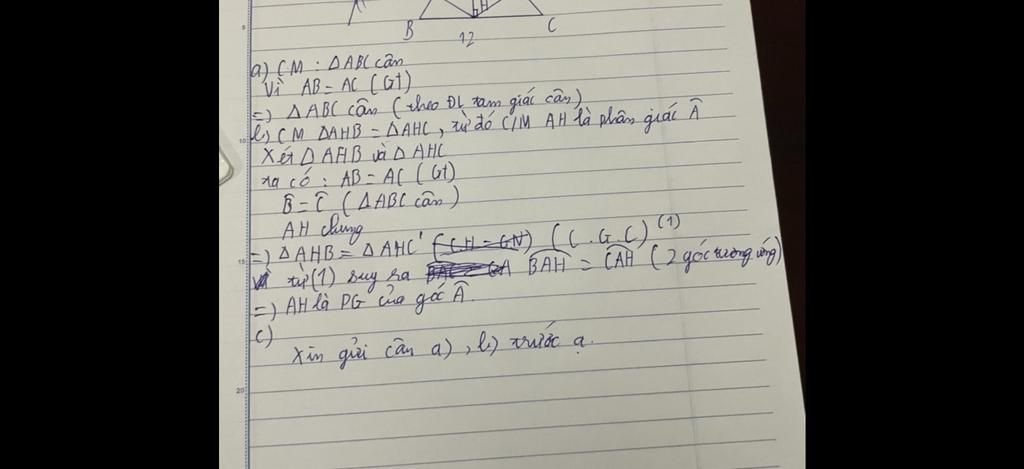 H
B
12
C
a) CM : ΔABC cân
Vì AB = AC (Gt)
=) ΔABC cân (theo ĐL tam giác cân)
b) CM ΔAHB = ΔAHC, từ đó C/M AH là phân giác Â
Xét ΔAHB và ΔAHC
ta có : AB = AC (Gt)
B̂ = Ĉ (ΔABC cân)
AH chung
=) ΔAHB = ΔAHC (C.H = GN) (C.G.C) (1)
từ (1) suy ra BAH = CAH (2 góc tương ứng)
=) AH là PG của góc Â.
c)
Xin gửi câu a), b) trước ạ.
5
10
15
20